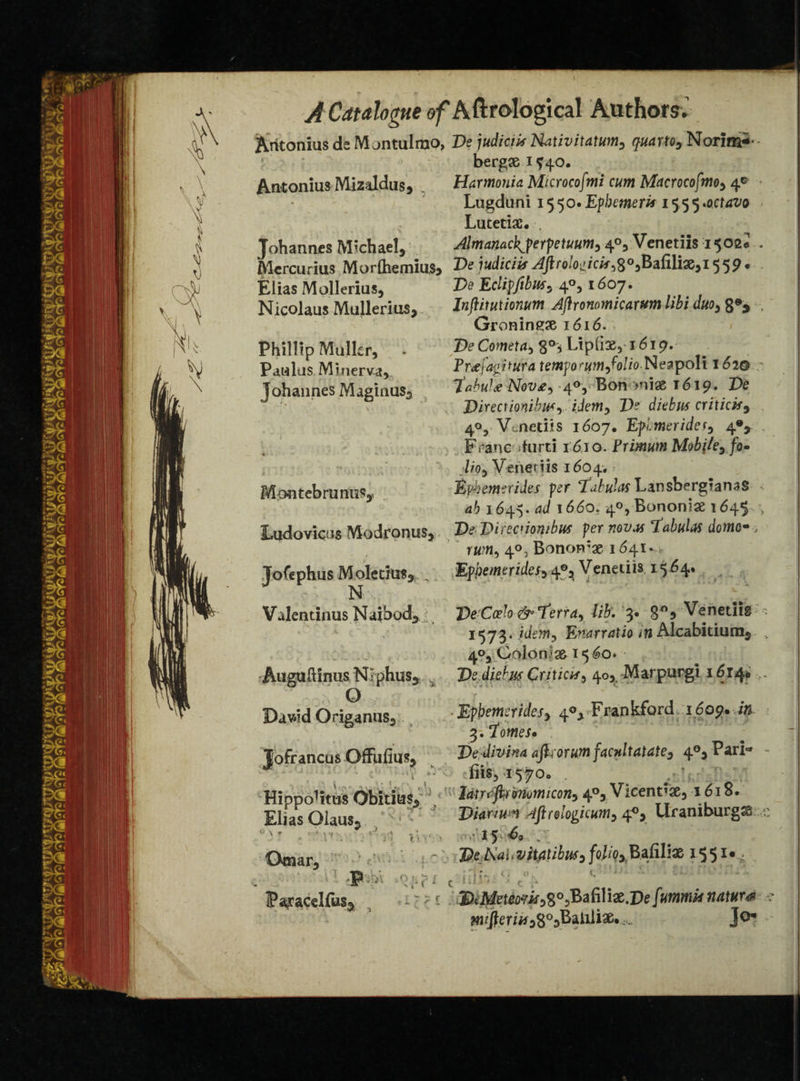 A Catalogue of Aſtrological Authors.
Antonius de Montulmo, De judiciis Nativitatum, quarto, Norim-
bergæ 1540.
Antonius Mizaldus, Harmonia Microcoſmi cum Macrocoſmo, 4°
Lugduni 1550. Ephemeris 1555. octavo
Lutetiæ.
Johannes Michael, Almanack perpetuum, 4°, Venetiis 1502.
Mercurius Morſhemius, De judiciis Aſtrologicis, 8°, Baſiliæ, 1559.
Elias Mollerius, De Eclipſibus, 4°, 1607.
Nicolaus Mullerius, Inſtitutionum Aſtronomicarum libi duo, 8°,
Groningæ 1616.
Phillip Muller, De Cometa, 8°, Lipſiæ, 1619.
Paulus Minerva, Præſagitura temporum, folio Neapoli 1620
Johannes Maginus, Tabulæ Novæ, 4°, Bononiæ 1619. De
Directionibus, idem, De diebus criticis,
4°, Venetiis 1607. Ephimerides, 4°,
Francofurti 1610. Primum Mobile, fo-
lio, Venetiis 1604.
Montebrunus, Ephemerides per Tabulas Lansbergianas
ab 1645. ad 1660. 4°, Bononiæ 1645
Ludovicus Modronus, De Directionibus per novas Tabulas domo-
rum, 4°, Bononiæ 1641.
Joſephus Moletius, Ephemerides, 4°, Venetiis 1564.
N
Valentinus Naibod, De Cœlo & Terra, lib. 3. 8°, Venetiis
1573. idem, Enarratio in Alcabitium,
4°, Coloniæ 1560.
Auguſtinus Niphus, De diebus Criticis, 4°, Marpurgi 1614.
O
David Origanus, Ephemerides, 4°, Frankford 1609. in
3. Tomes.
Jofrancus Offuſius, De divina aſtrorum facultatate, 4°, Pari-
ſiis, 1570.
Hippolitus Obitius, Iatroſtronomicon, 4°, Vicentiæ, 1618.
Elias Olaus, Diarium Aſtrologicum, 4°, Uraniburgæ
15 6.
Omar, De Nativitatibus, folio, Baſiliæ 1551.
P
Paracelſus, De Meteoris, 8°, Baſiliæ. De ſummis naturæ
miſteriis, 8°, Baſiliæ. Jo-